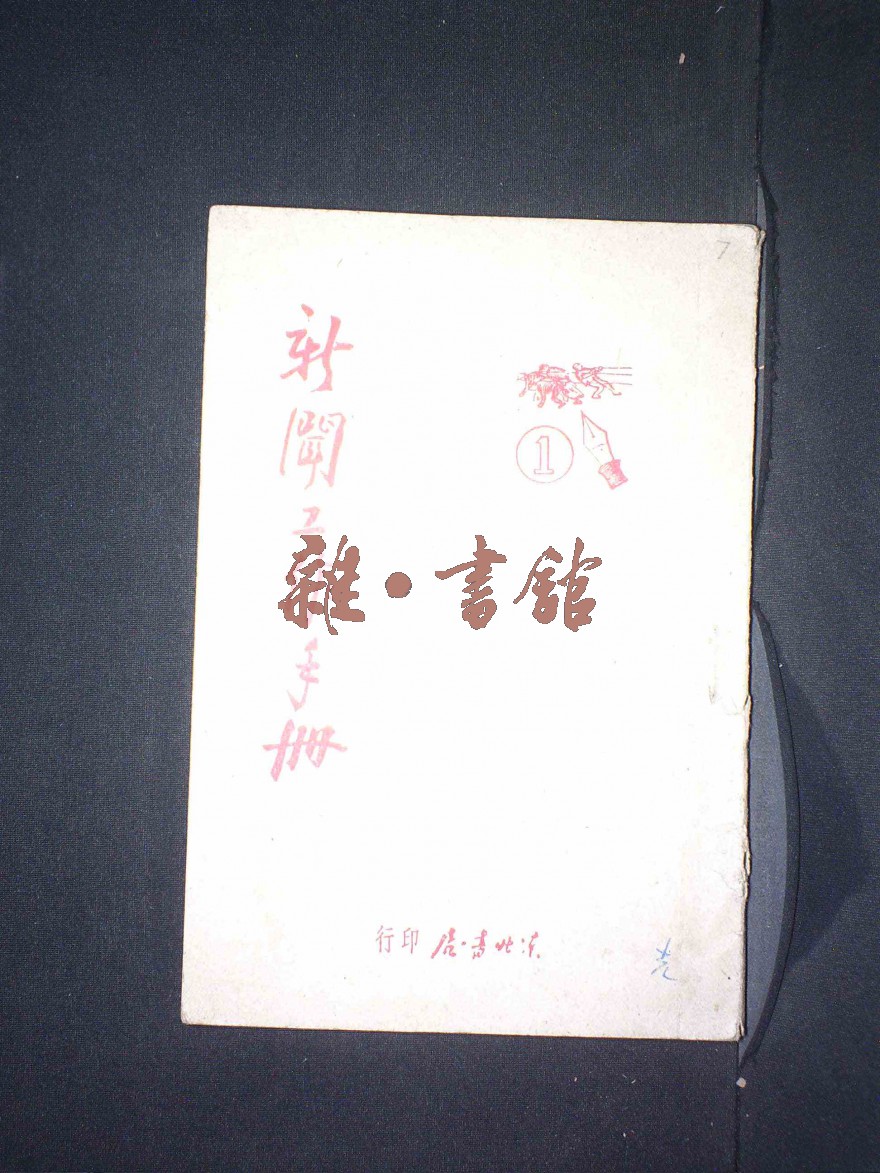 7
①
新聞工作手册
雜·書館
东北書店印行